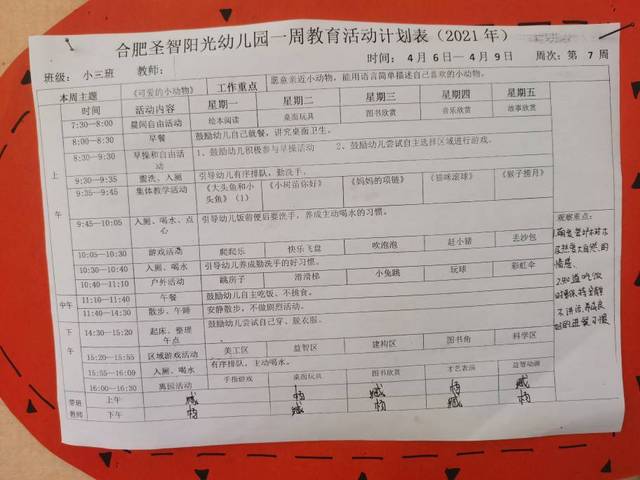 合肥圣智阳光幼儿园一周教育活动计划表（2021年）
班级： 小三班 教师： 时间： 4月6日—4月9日 周次：第 7 周
本周主题 《可爱的小动物》 工作重点 愿意亲近小动物，能用语言简单描述自己喜欢的小动物。
时间 活动内容 星期一 星期二 星期三 星期四 星期五
7:30—8:00 晨间自由活动 绘本阅读 桌面玩具 图书欣赏 音乐欣赏 故事欣赏
8:00—8:30 早餐 鼓励幼儿自己就餐，讲究桌面卫生。
上午
8:30—9:30 早操和自由活动 1、鼓励幼儿积极参与早操活动 2、鼓励幼儿尝试自主选择区域进行游戏。
9:30—9:35 盥洗、入厕 引导幼儿有序排队，勤洗手。
9:35—9:45 集体教学活动 《大头鱼和小头鱼》（1） 《小树苗你好》 《妈妈的项链》 《猫咪滚球》 《猴子捞月》
9:45—10:05 入厕、喝水、点心 引导幼儿饭前便后要洗手，养成主动喝水的习惯。
10:05—10:30 游戏活动 爬爬乐 快乐飞盘 吹泡泡 赶小猪 丢沙包
10:30—10:40 入厕、喝水 引导幼儿养成勤洗手的好习惯。
10:40—11:10 户外活动 跳房子 滑滑梯 小兔跳 玩球 彩虹伞
中午
11:10—11:40 午餐 鼓励幼儿自主吃饭、不挑食。
11:40—14:30 散步、午睡 安静散步，不做剧烈活动。
下午
14:30—15:20 起床、整理午点 鼓励幼儿尝试自己穿、脱衣服。
15:20—15:55 区域游戏活动 美工区 益智区 建构区 图书角 科学区
15:55—16:00 入厕、喝水 有序排队，主动喝水。
16:00—16:30 离园活动 手指游戏 桌面玩具 图书欣赏 才艺表演 益智动画
带班教师 上午 臧 杨 臧 杨 臧
下午 杨 臧 杨 臧 杨
观察重点：
大自然的
情感。
2.知道吃饭
时
不讲话，养成良
好的进餐习惯